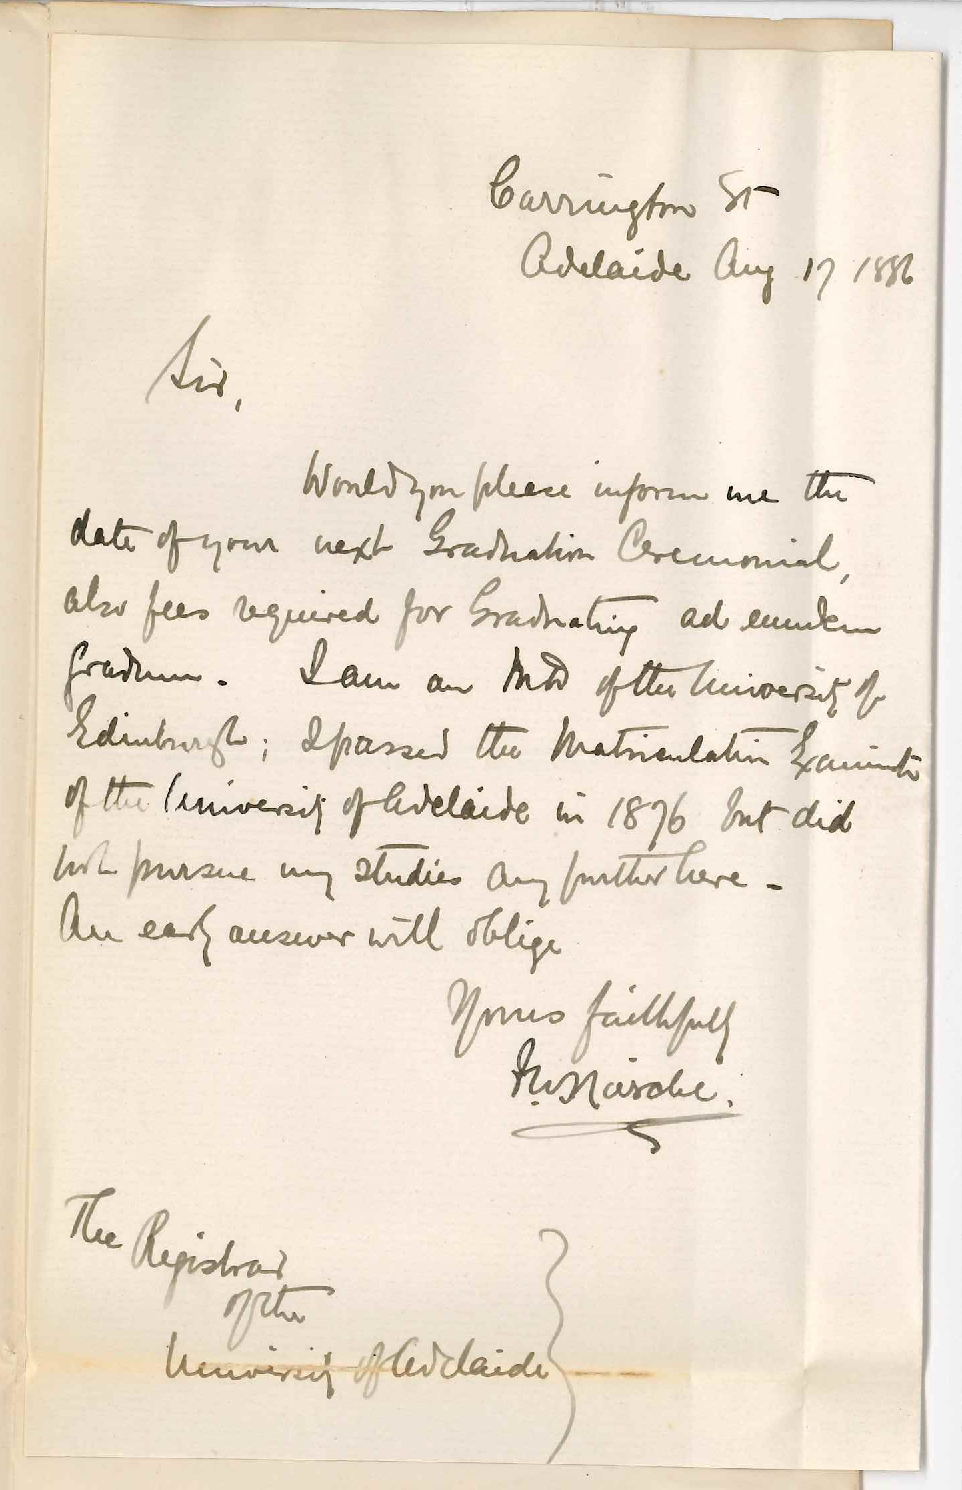 Carrington St
Adelaide Aug 17 1886
Sir,
Would you please inform me the
date of your next Graduation Ceremonial,
also fees required for Graduating ad eundem
gradum. I am an MD of the University of
Edinburgh; I passed the Matriculation
of the University of Adelaide in 1876 but did
not pursue my studies any further here -
An early answer will oblige
Yours faithfully
The Registrar
of the
University of Adelaide